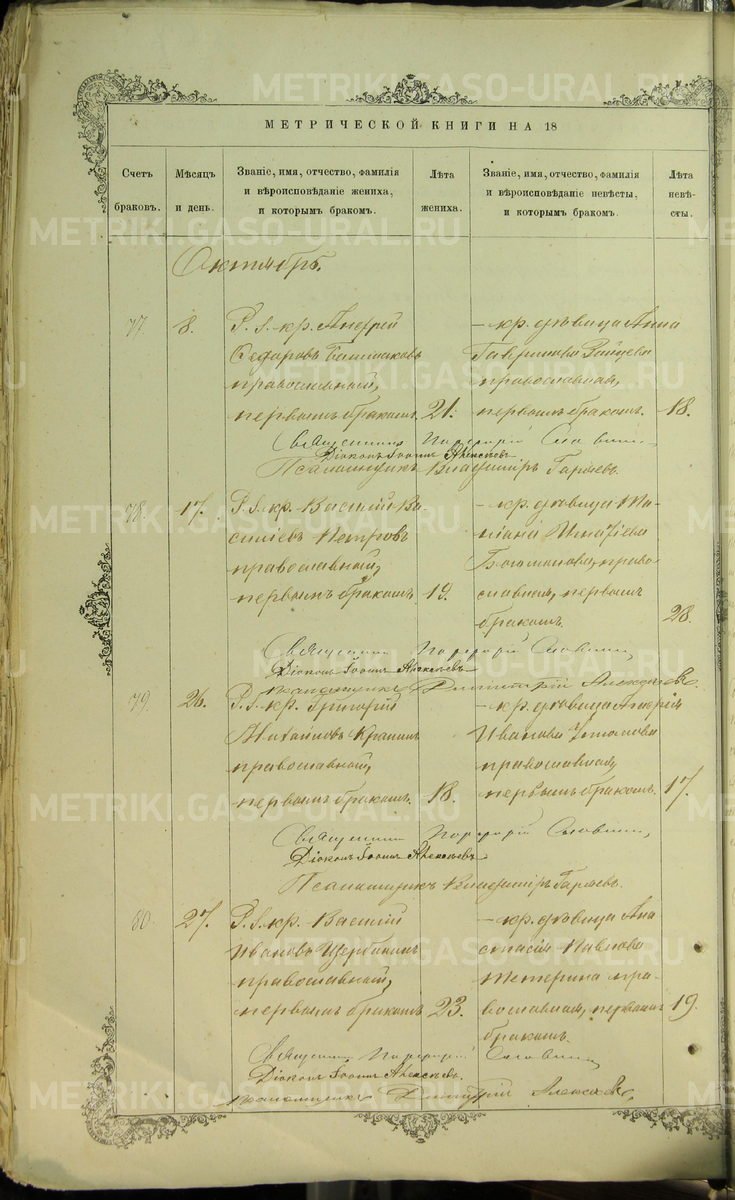 МЕТРИЧЕСКОЙ КНИГИ НА 18
Счетъ браковъ.
Мѣсяцъ и день.
Званіе, имя, отчество, фамилія
и вѣроисповѣданіе жениха,
и которымъ бракомъ.
Лѣта жениха.
Званіе, имя, отчество, фамилія
и вѣроисповѣданіе невѣсты,
и которымъ бракомъ.
Лѣта невѣсты.
Октябрь.
77. 8.
кр. Андрей
Ѳедоровъ Башмаковъ
православный,
первымъ бракомъ. 21.
кр. дѣвица Анна
Гаврилова
православная,
первымъ бракомъ. 18.
Священникъ Порфирій Словинъ,
Діаконъ Іоаннъ Алексѣевъ
Псаломщикъ Владиміръ Гаряевъ.
78. 17.
кр. Василій Ва-
сильевъ Петровъ
православный,
первымъ бракомъ. 19.
кр. дѣвица Та-
тіана Игнатіева
право-
славная, первымъ
бракомъ. 28.
Священникъ Порфирій Словинъ,
Діаконъ Іоаннъ Алексѣевъ
Псаломщикъ Димитрій
79. 26.
кр. Григорій
Михайловъ
православный,
первымъ бракомъ. 18.
кр. дѣвица Марія
Иванова
православная,
первымъ бракомъ. 17.
Священникъ Порфирій Словинъ,
Діаконъ Іоаннъ Алексѣевъ
Псаломщикъ Владиміръ Гаряевъ.
80. 27.
кр. Василій
Ивановъ Щербининъ
православный,
первымъ бракомъ 23.
кр. дѣвица Ана-
стасія Павлова
Тетерина пра-
вославная, первымъ
бракомъ. 19.
Священникъ Порфирій Словинъ,
Діаконъ Іоаннъ Алексѣевъ.
Псаломщикъ Димитрій
METRIKI.GASO-URAL.RU